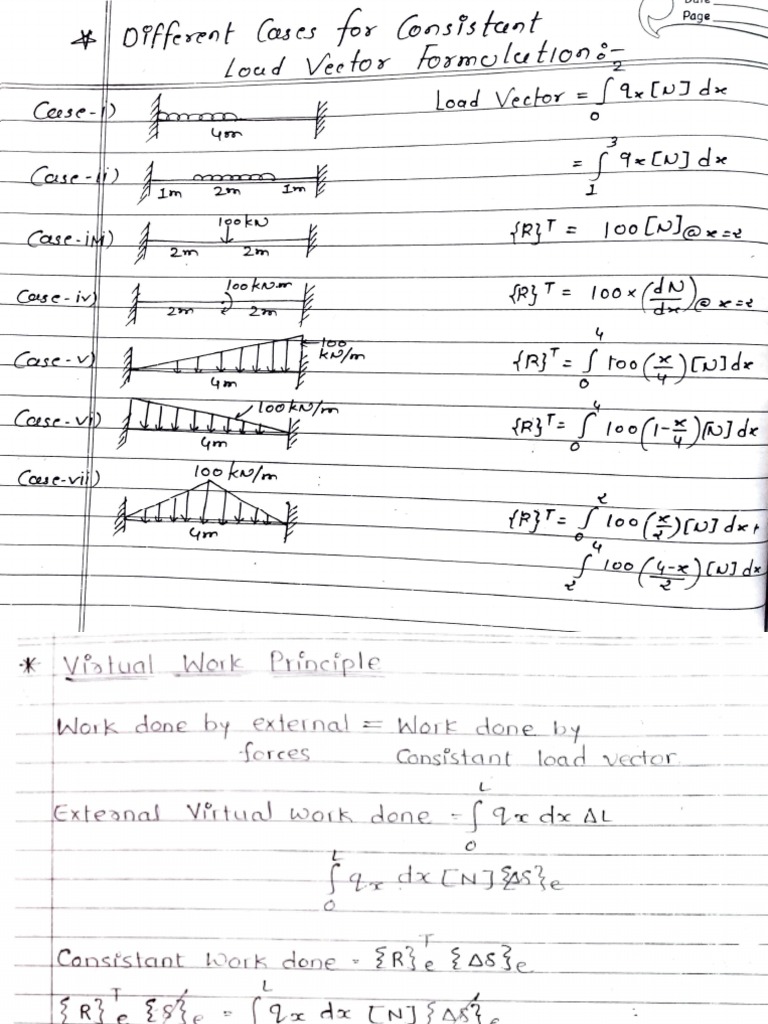 Date
Page
* Different Cases for Consistant
Load Vector Formulation:-
Case-i)
4m
Load Vector = ∫₀² qx [N] dx
Case-ii)
1m 2m 1m
= ∫₁³ qx [N] dx
Case-iii)
100kN
2m 2m
{R}ᵀ = 100 [N]@x=2
Case-iv)
100kN.m
2m 2m
{R}ᵀ = 100 × (dN/dx)@x=2
Case-v)
100 kN/m
4m
{R}ᵀ = ∫₀⁴ 100 (x/4) [N] dx
Case-vi)
100kN/m
4m
{R}ᵀ = ∫₀⁴ 100 (1-x/4) [N] dx
Case-vii)
100kN/m
4m
{R}ᵀ = ∫₀² 100 (x/2) [N] dx +
∫₂⁴ 100 (4-x/2) [N] dx
* Virtual Work Principle
Work done by external = Work done by
forces Consistant load vector
External Virtual work done = ∫₀ᴸ qx dx ΔL
∫₀ᴸ qx dx [N] {Δδ}e
Consistant Work done = {R}ᵀe {Δδ}e
{R}ᵀe {δ}e = ∫ᴸ qx dx [N] {Δδ}e